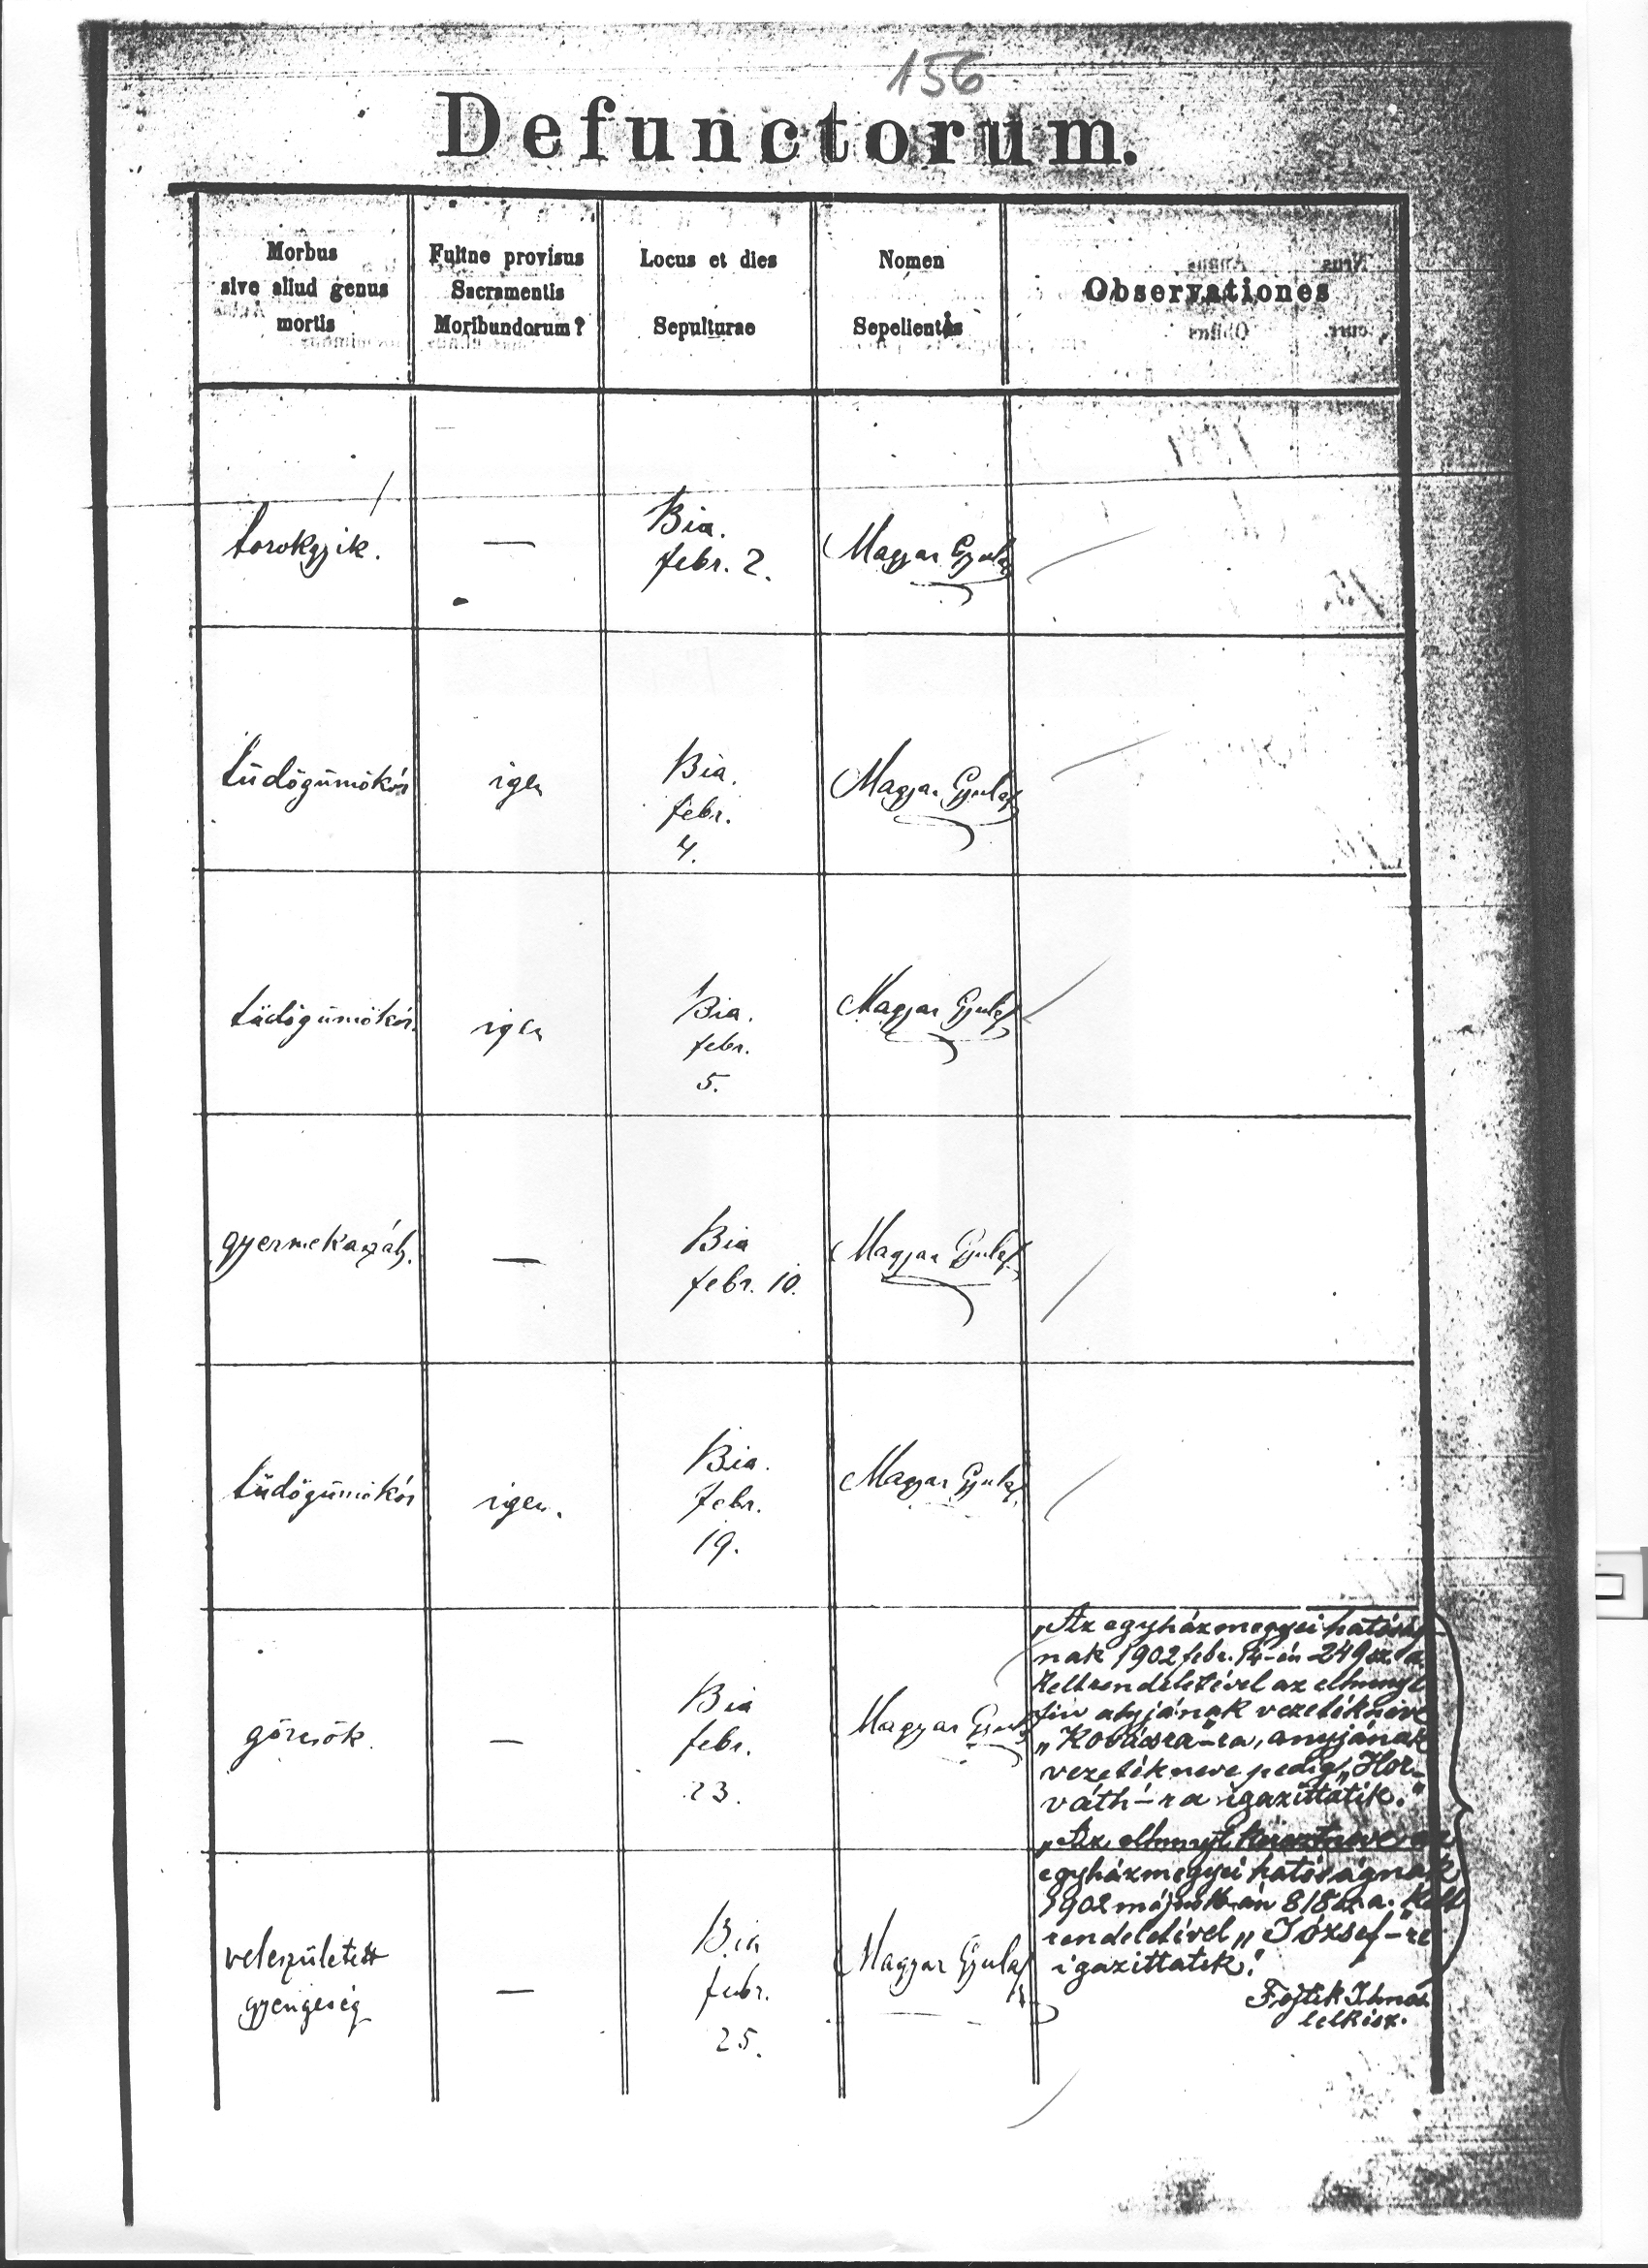 156
Defunctorum.
Morbus
sive aliud genus
mortis
Fuitne provisus
Sacramentis
Moribundorum?
Locus et dies
Sepulturae
Nomen
Sepelientis
Observationes
torokgyik.
—
Bia.
febr. 2.
Magyar Gyula
tüdőgümőkór
igen
Bia.
febr.
4.
Magyar Gyula
tüdőgümőkór.
igen
Bia.
febr.
5.
Magyar Gyula
—
Bia
febr. 10.
Magyar Gyula
tüdőgümőkór
igen.
Bia.
febr.
19.
Magyar Gyula
görcsök.
—
Bia
febr.
23.
Magyar Gyula
„Az egyházmegyei hatóság
nak 1902 febr. 14-én 249 sz. a
kelt rendeletével az elhunyt
atyjának vezetékneve
„Kovácsra"-ra, anyjának
vezetékneve pedig „Hor-
váth-ra igazittatik."
veleszületett
gyengeség
—
Bia
febr.
25.
Magyar Gyula
„Az elhunyt keresztneve az
egyházmegyei hatóságnak
1902 május 16-án 818 sz. a. kelt
rendeletével „József"-re
igazittatik."
Fojtik
lelkész.